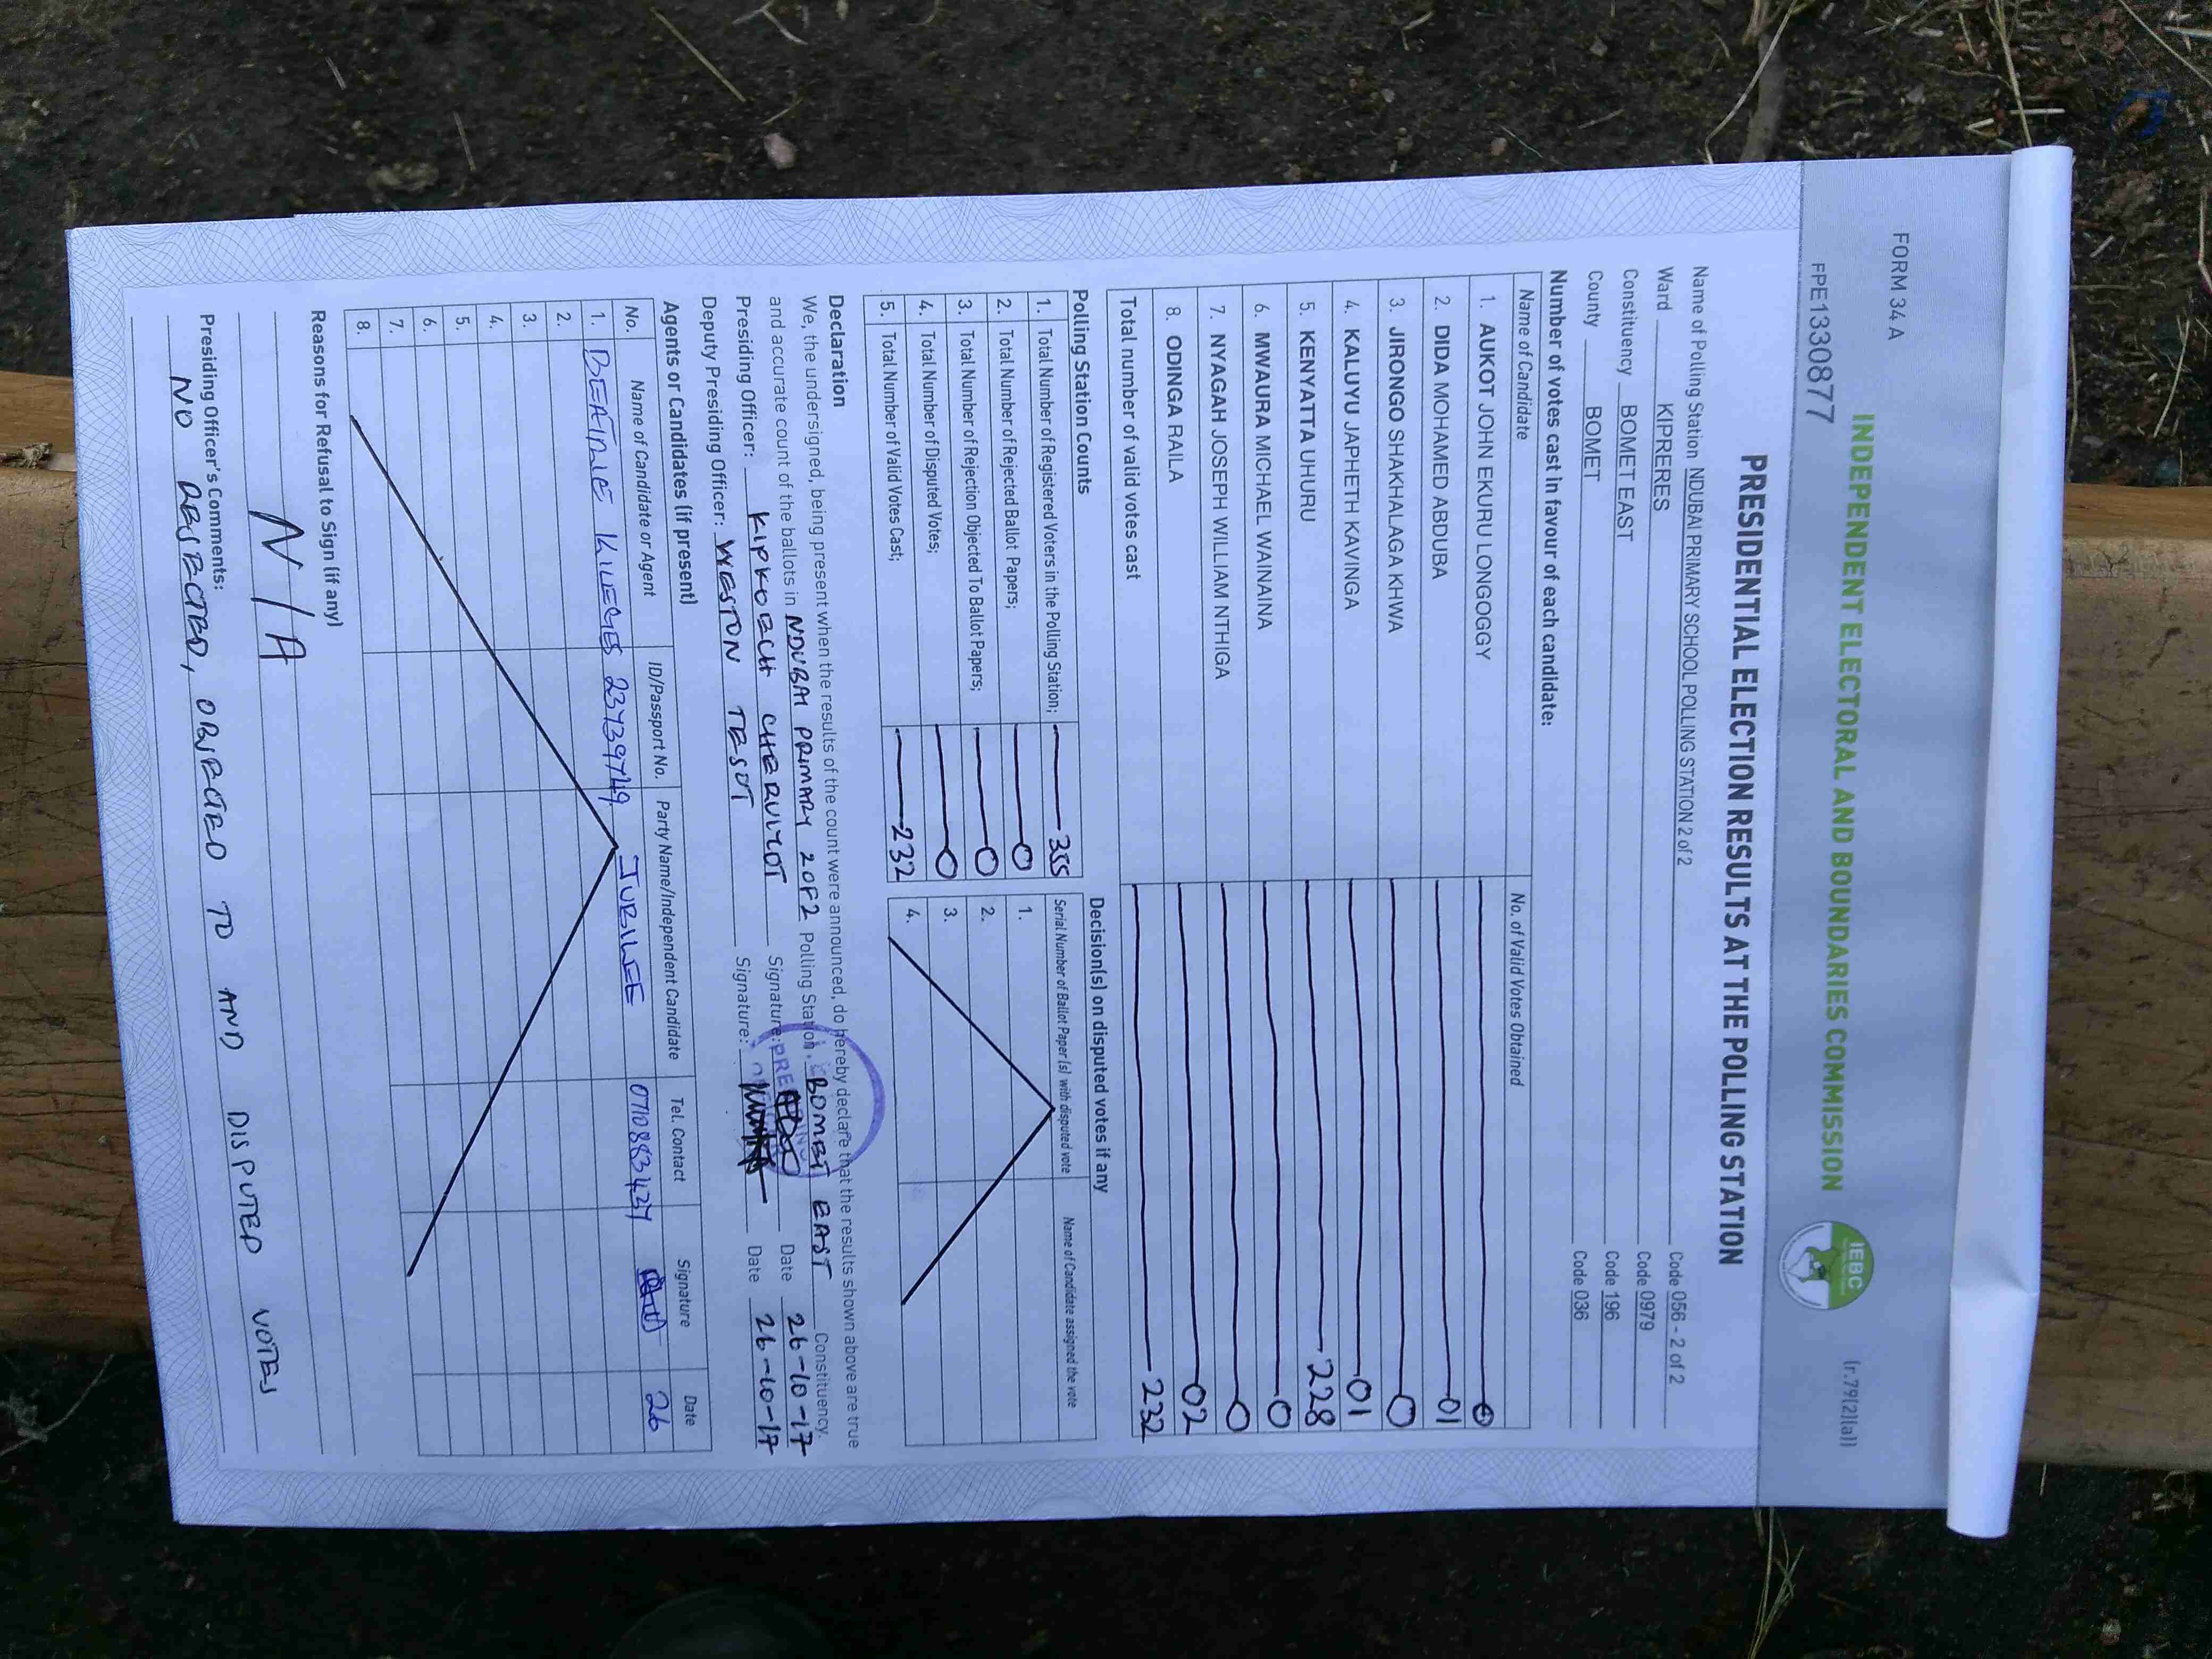 FORM 34 A
(r.79(2)(a))
INDEPENDENT ELECTORAL AND BOUNDARIES COMMISSION
IEBC
FPE1330877
PRESIDENTIAL ELECTION RESULTS AT THE POLLING STATION
Name of Polling Station NDUBAI PRIMARY SCHOOL POLLING STATION 2 of 2 Code 056 - 2 of 2
Ward KIPRERES Code 0979
Constituency BOMET EAST Code 196
County BOMET Code 036
Number of votes cast in favour of each candidate:
Name of Candidate No. of Valid Votes Obtained
1. AUKOT JOHN EKURU LONGOGGY 0
2. DIDA MOHAMED ABDUBA 01
3. JIRONGO SHAKHALAGA KHWA 0
4. KALUYU JAPHETH KAVINGA 01
5. KENYATTA UHURU 228
6. MWAURA MICHAEL WAINAINA 0
7. NYAGAH JOSEPH WILLIAM NTHIGA 0
8. ODINGA RAILA 02
Total number of valid votes cast 232
Polling Station Counts
1. Total Number of Registered Voters in the Polling Station; 355
2. Total Number of Rejected Ballot Papers; 0
3. Total Number of Rejection Objected To Ballot Papers; 0
4. Total Number of Disputed Votes; 0
5. Total Number of Valid Votes Cast; 232
Decision(s) on disputed votes if any
Serial Number of Ballot Paper(s) with disputed vote Name of Candidate assigned the vote
1.
2.
3.
4.
Declaration
We, the undersigned, being present when the results of the count were announced, do hereby declare that the results shown above are true
and accurate count of the ballots in NDUBAI PRIMARY 2 OF 2 Polling Station, BOMET EAST Constituency.
Presiding Officer: KIPKOECH CHERUIYOT Signature: Date 26-10-17
Deputy Presiding Officer: WESTON TESOT Signature: Date 26-10-17
Agents or Candidates (if present)
No. Name of Candidate or Agent ID/Passport No. Party Name/Independent Candidate Tel. Contact Signature Date
1. 23739749 JUBILEE 0710883437 26
2.
3.
4.
5.
6.
7.
8.
Reasons for Refusal to Sign (if any)
N/A
Presiding Officer's Comments:
NO REJECTED, OBJECTED TO AND DISPUTED VOTES